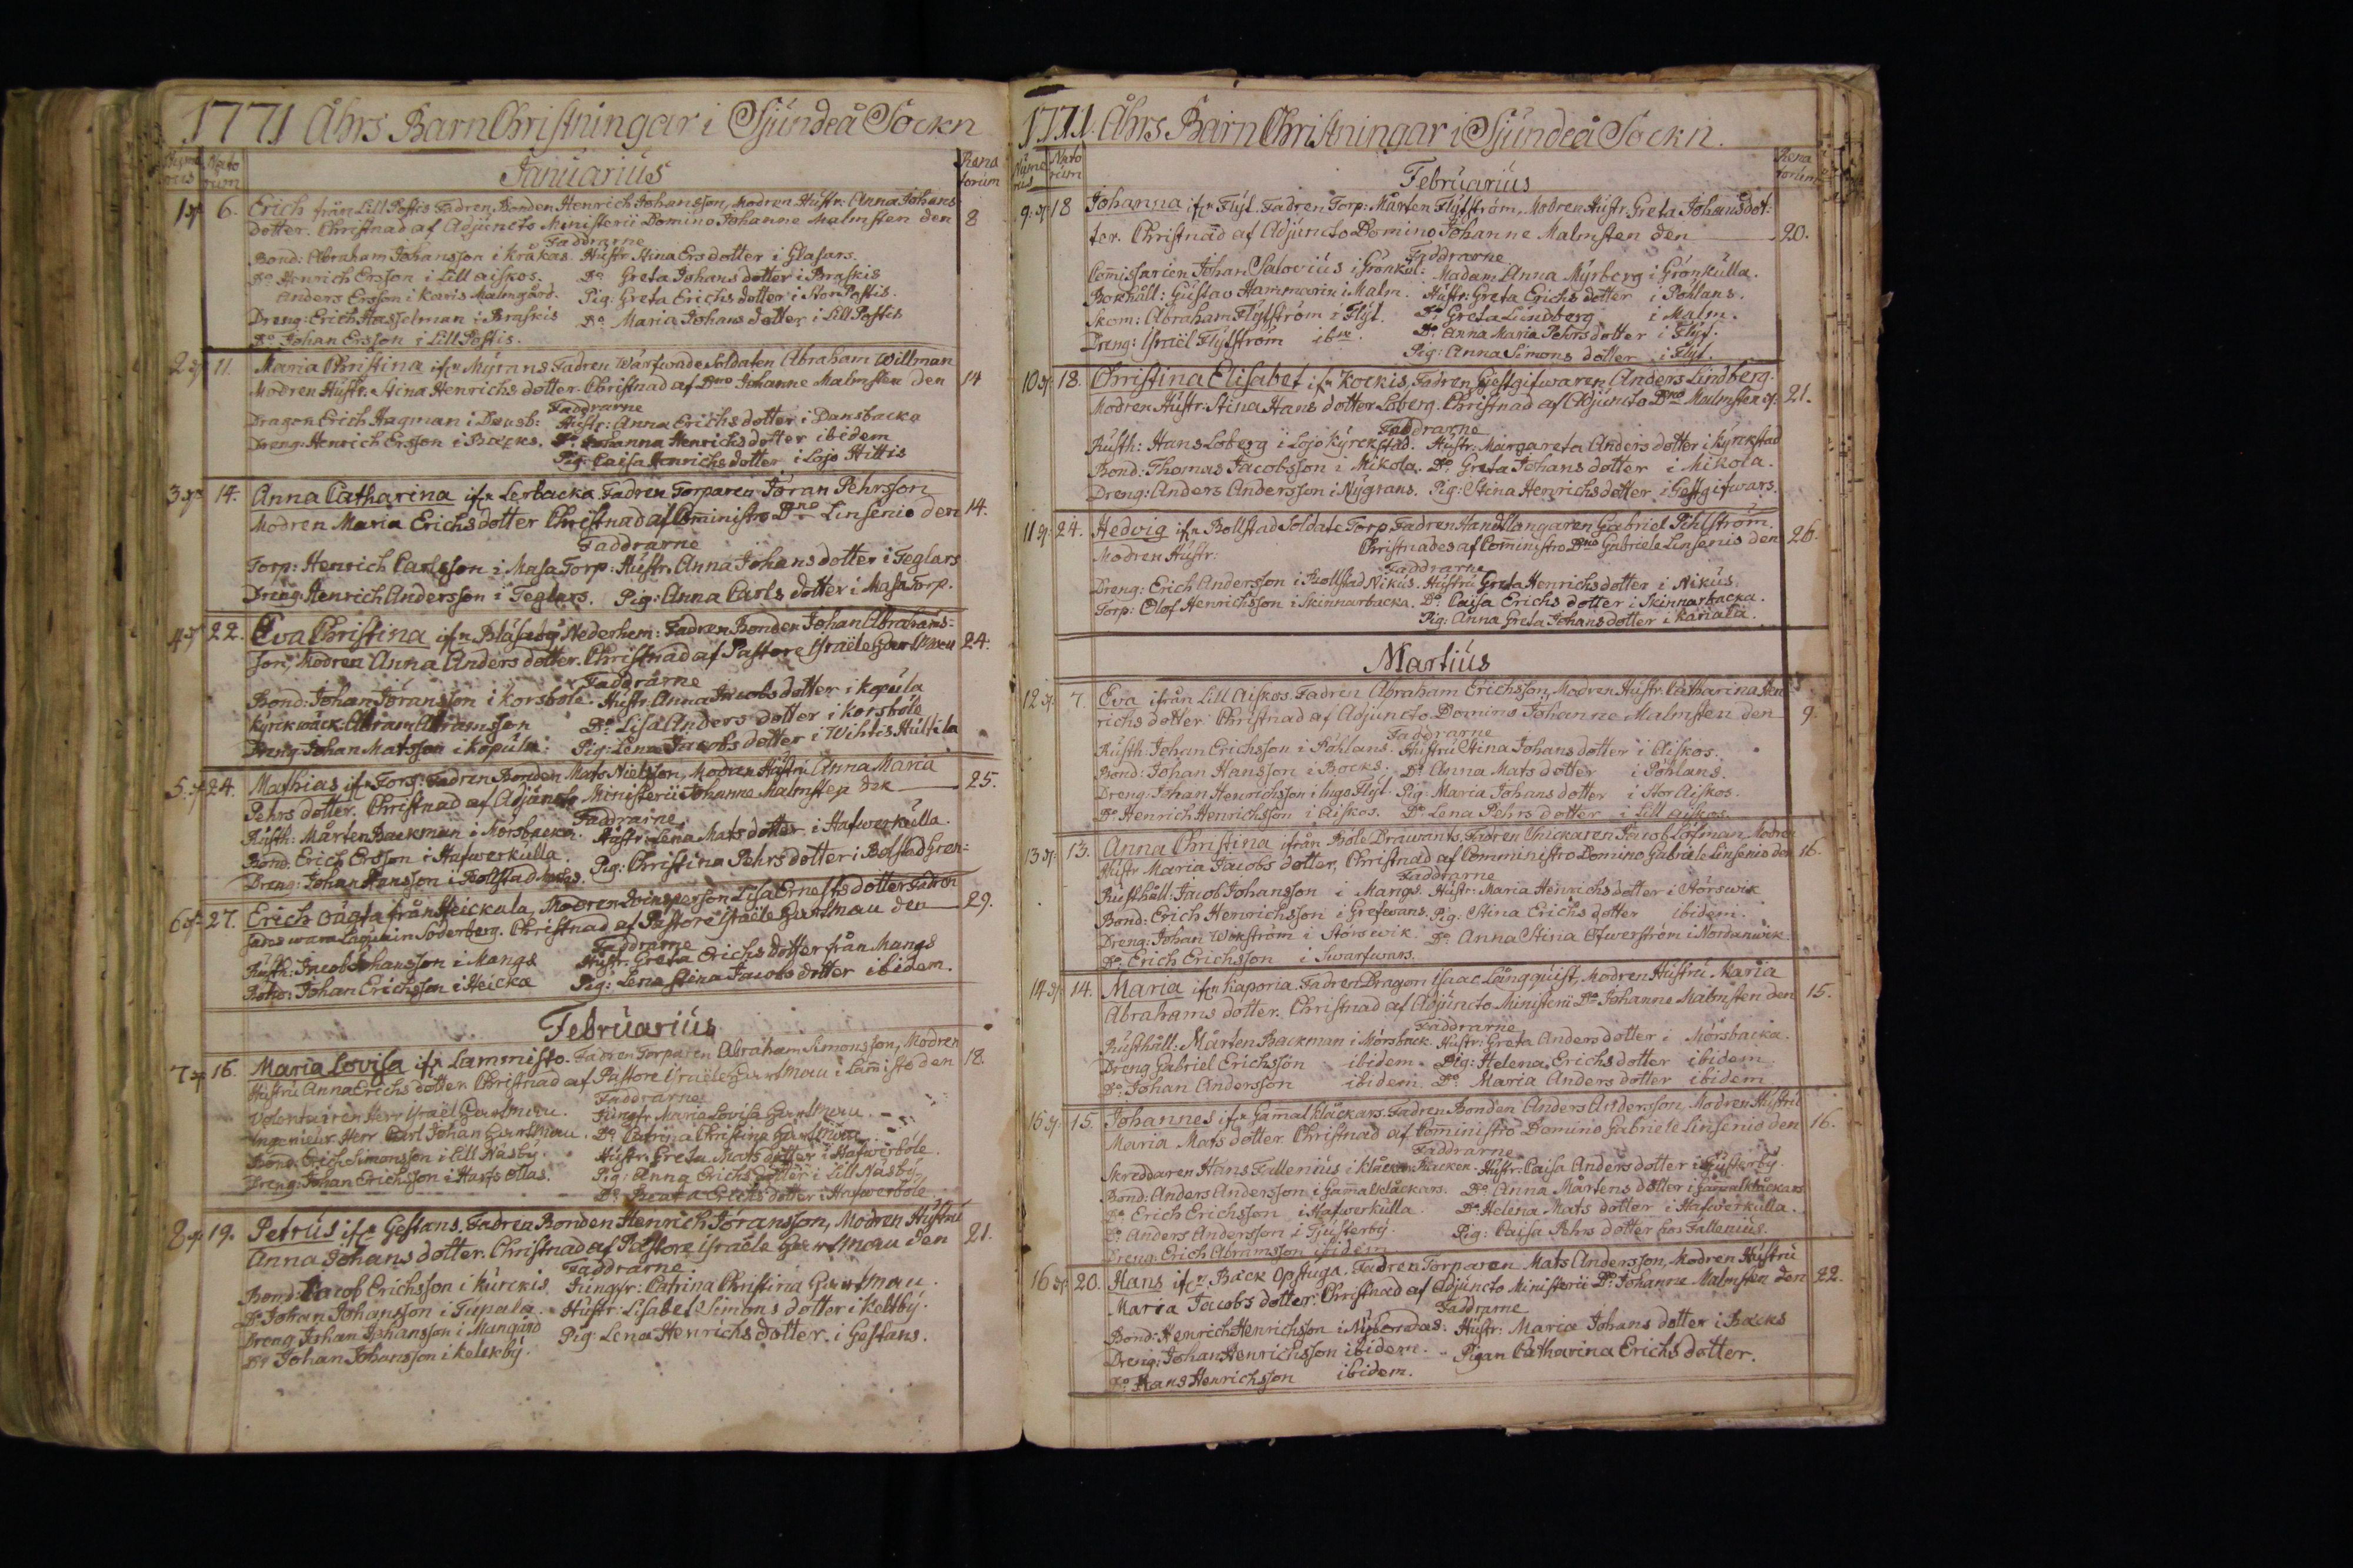 1771 Åhrs Barn Christningar i Sjundeå Sockn
Numerus Natorum Januarius Renatorum
1 6. Erich från Lill Postis Fadren Bonden Henrich Johansson, Modren Hustr. Anna Johans
dotter. Christnad af Adjuncto Ministerii Domino Johanne Malmsten den 8
Faddrarne
Bond: Abraham Johansson i Kråkas. Hustr Stina Ers dotter i Glasars.
Do Henrich Ersson i Lill aiskos. Do Greta Johans dotter i Braskis
Anders Ersson i Karis Malmgård. Pig: Greta Erichs dotter i Stor Postis.
Dreng: Erich Hasselman i Braskis Do Maria Johans dotter i Lill Postis
Do Johan Ersson i Lill Postis.
2 11. Maria Christina ifrn Myrans Fadren Wärfwade Soldaten Abraham Willman
Modren Hustr. Stina Henrichs dotter. Christnad af Dno Johanne Malmsten den 14
Faddrarne
Dragon Erich Hagman i Dansb: Hustr: Anna Erichs dotter i Dansbacka
Dreng: Henrich Ersson i Backs. Do Johanna Henrichs dotter ibidem
Pig: Caisa Henrichs dotter i Lojo Hittis
3 14. Anna Catharina ifrn Lerbacka Fadren Torparen Jöran Pehrsson
Modren Maria Erichs dotter Christnad af Comministro Dno Linsenio den 14.
Faddrarne
Torp: Henrich Carlsson i Masa Torp: Hustr. Anna Johans dotter i Teglars
Dreng: Henrich Andersson i Teglars. Pig: Anna Carls dotter i Masa Torp.
4 22. Eva Christina ifrn Blåsaby Nederhem: Fadren Bonden Johan Abrahams-
son, Modren Anna Anders dotter. Christnad af Pastore Israële 24.
Faddrarne
Bond: Johan Jöransson i Korsböle. Hustr. Anna Jacobs dotter i Kopula
Kyrckwäck: Abram Abramsson Do Lisa Anders dotter i Korsböle
Dreng: Johan Matsson i Kopula: Pig: Lena Jacobs dotter i Wihtis Hultila
5 24. Mathias ifrn Fors: Fadren Bonden Mats Nielsson, Modren Hustru Anna Maria
Pehrs dotter. Christnad af Adjuncto Ministerii Johanne Malmsten den 25.
Faddrarne
Rusth: Mårten Backman i Morsbacka. Hustr: Lena Mats dotter i Hafwerkulla.
Bond: Erich Ersson i Hafwerkulla. Pig: Christina Pehrs dotter i Bolstad Gren-
Dreng: Johan Hansson i Bollstad
6 27. Erich oägta från Heickala, Modren Löinsperson Lisa Ernests dotter Fadren
Christnad af Pastore Israële den 29.
Faddrarne
Rusth: Jacob Johansson i Mangs Hustr. Greta Erichs dotter från Mangs
Bond: Johan Erichsson i Heicka Pig: Lena Stina Jacobs dotter ibidem.
Februarius
7 16. Maria Lovisa ifrn Lammisto. Fadren Torparen Abraham Simonsson, Modren
Hustru Anna Erichs dotter Christnad af Pastore Israële i Lamisto den 18.
Faddrarne
Volontairen Herr Israël Jungfr Maria Lovisa
Ingenieur Herr Carl Johan Do Catrina Christina
Bond: Erich Simonsson i Lill Näsby. Hustr. Greta Mats dotter i Hafwerböle.
Dreng: Johan Erichsson i Harfs Ottas. Pig: Anna Erichs dotter i Lill Näsby
Do Beata Erichs dotter i Hafwerböle
8 19. Petrus ifrn Gestans, Fadren Bonden Henrich Jöransson, Modren Hustru
Anna Johans dotter. Christnad af Pastore Israële den 21.
Faddrarne
Bond: Jacob Erichsson i Kurckis. Jungfr: Catrina Christina
Do Johan Johansson i Tupala. Hustr: Lisabet Simons dotter i Kelkby.
Dreng Johan Johansson i Mangård Pig: Lena Henrichs dotter. i Gestans.
Do Johan Johansson i Kelckby.
1771. Åhrs Barn Christningar i Sjundeå Sockn.
Numerus Natorum Februarius Renatorum
9. 18 Johanna ifrn Flyt. Fadren Torp: Mårten Flytström, Modren Hustr. Greta Johans dot-
ter. Christnad af Adjuncto Domino Johanne Malmsten den 20.
Faddrarne
Comissarien Johan Salovius i Grönkul: Madam Anna Myrberg i Grönkulla.
Bokhåll: Gustav Hammarin i Malm. Hustr: Greta Erichs dotter i Pohlans.
Skom: Abraham Flytström i Flyt. Do Greta Lundberg i Malm.
Dreng: Israël Flytström ibm. Do Anna Maria Pehrs dotter i Flyt.
Pig: Anna Simons dotter i Flyt.
10 18. Christina Elisabet ifrn Kockis, Fadren Gestgifwaren Anders Lindberg.
Modren Hustr: Stina Hans dotter Loberg. Christnad af Adjuncto Dno Malmsten 21.
Faddrarne
Rusth: Hans Loberg i Lojo Kyrckstad. Hustr. Margareta Anders dotter i Kyrckstad
Bond: Thomas Jacobsson i Mikola. Do Greta Johans dotter i Mikola.
Dreng: Anders Andersson i Nygrans. Pig: Stina Henrichs dotter i Gestgifwars.
11 24. Hedvig ifrn Bollstad Soldate Torp Fadren Handtlangaren Gabriel Pihlström.
Modren Hustr: Christnades af Comministro Dno Gabriele Linsenio den 26.
Faddrarne
Dreng: Erich Andersson i Bollstad Nikus. Hustru Greta Henrichs dotter i Nikus.
Torp: Olof Henrichsson i Skinnarbacka. Do Caisa Erichs dotter i Skinnarbacka.
Pig: Anna Greta Johans dotter i Kariala.
Martius
12 7. Eva ifrån Lill Aiskos. Fadren Abraham Erichsson, Modren Hustr Catharina Hen
richs dotter Christnad af Adjuncto Domino Johanne Malmsten den 9.
Faddrarne
Rusth: Johan Erichsson i Pohlans. Hustru Stina Johans dotter i Aiskos.
Bond: Johan Hansson i Bocks. Do Anna Mats dotter i Pohlans.
Dreng: Johan Henrichsson i Inge Flyt. Pig Maria Johans dotter i Stor Aiskos.
Do Henrich Henrichsson i Aiskos. Do Lena Pehrs dotter i Lill aiskos.
13 13. Anna Christina ifrån Böle Drawants, Fadren Snickaren Jacob Löfman, Modren
Hustr Maria Jacobs dotter, Christnad af Comministro Domino Gabriele Linsenio den 16.
Faddrarne
Rusthåll: Jacob Johansson i Mangs. Hustr: Maria Henrichs dotter i Störswik
Bond: Erich Henrichsson i Grefwans. Pig: Stina Erichs dotter ibidem.
Dreng: Johan Wikström i Störswik Do Anna Stina Öfwerström i Nordanwik.
Do Erich Erichsson i Swarfwars.
14 14. Maria ifrn Kaporia. Fadren Dragon Isaac Långquist, Modren Hustru Maria
Abrahams dotter. Christnad af Adjuncto Ministerii Do Johanne Malmsten den 15.
Faddrarne
Rusthåll: Mårten Backman i Mörsback. Hustr: Greta Anders dotter i Mörsbacka.
Dreng Gabriel Erichsson ibidem. Pig: Helena Erichs dotter ibidem.
Do Johan Andersson ibidem. Do Maria Anders dotter ibidem
15 15. Johannes ifrn Gamalkläckars. Fadren Bonden Anders Andersson, Modren Hustru
Maria Mats dotter. Christnad af Cominstro Domino Gabriele Linsenio den 16.
Faddrarne
Skreddaren Hans Fallenius i Backen. Hustr: Caisa Anders dotter i Tjusterby.
Bond: Anders Andersson i Gamalkläckars. Do Anna Mårtens dotter i Gamalkläckars
Do Erich Erichsson i Hafwerkulla. Do Helena Mats dotter i Hafwerkulla.
Do Anders Andersson i Tjusterby. Pig: Caisa Pehrs dotter hos Fallenius.
Dreng: Erich Abramsson ibidem
16 20. Hans ifrn Bäck Opstuga. Fadren Torparen Mats Andersson, Modren Hustru
Maria Jacobs dotter. Christnad af Adjuncto Ministerii Do Johanne Malmsten den 22.
Faddrarne
Bond: Henrich Henrichsson i Hustr: Maria Johans dotter i Backs
Dreng: Johan Henrichsson ibidem. Pigan Catharina Erichs dotter.
Do Hans Henrichsson ibidem.